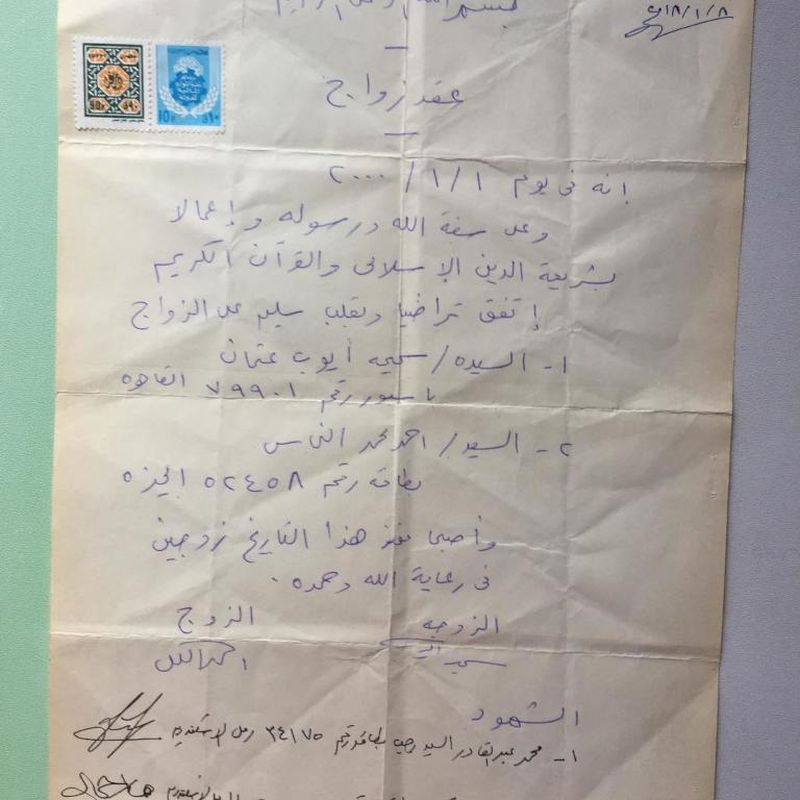 بسم الله الرحمن الرحيم
عقد زواج
انه فى يوم ١ / ١ / ٢٠٠٠
وعلى سنة الله ورسوله وإعمالا
بشريعة الدين الإسلامى والقرآن الكريم
إتفق تراضيا وبقلب سليم على الزواج
١- السيده / سميه أيوب عثمان
باسبور رقم ٧٩٩٠١ القاهره
٢- السيد / احمد محمد
بطاقه رقم ٥٢٤٥٨ الجيزه
وأصبحا منذ هذا التاريخ زوجين
فى رعاية الله وحمده .
الزوجه الزوج
الشهود
١- محمد عبدالقادر السيد رجب بطاقه رقم ٣٤١٧٥ رمل الاسكندريه